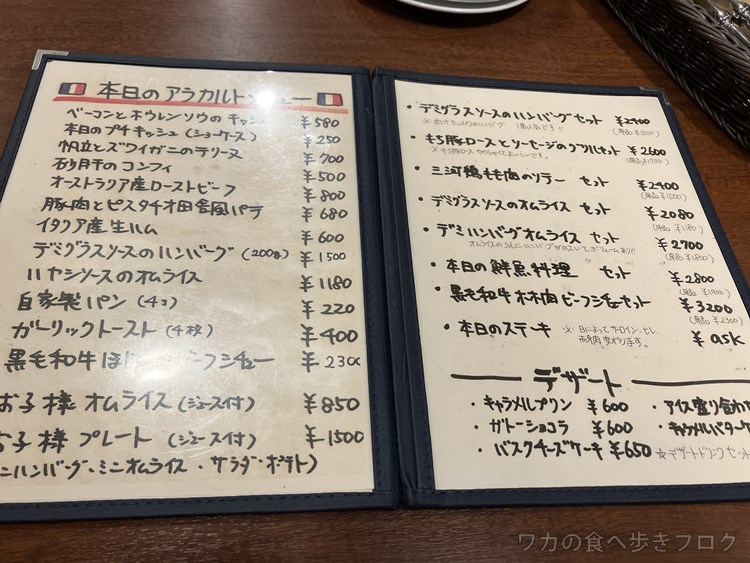 本日のアラカルト ニュー
ベーコンとホウレンソウのキッシュ ¥580
本日のプチキッシュ(ショーケース) ¥250
帆立とズワイガニのテリーヌ ¥700
砂肝のコンフィ ¥500
オーストラリア産ローストビーフ ¥800
豚肉とピスタチオ田舎風パテ ¥680
イタリア産生ハム ¥600
デミグラスソースのハンバーグ(200g) ¥1500
ハヤシソースのオムライス ¥1180
自家製パン(4コ) ¥220
ガーリックトースト(4枚) ¥400
黒毛和牛ほほ ーフシチュー ¥2300
お子様オムライス(ジュース付) ¥850
お子様プレート(ジュース付) ¥1500
ニハンバーグ・ミニオムライス・サラダ・ポテト)
・デミグラスソースのハンバーグセット ¥2400
・もち豚ロースとソーセージのグリルセット ¥2600
(単品¥1700)
・三河鴨もも肉のソテー セット ¥2400
・デミグラスソースのオムライス セット ¥2080
(単品¥1180)
・デミハンバーグオムライス セット ¥2700
オムライスのうえにハンバーグがのってボリュームあり!!
(単品¥1800)
・本日の鮮魚料理 セット ¥2800
(単品¥1900)
・黒毛和牛ホホ肉ビーフシチューセット ¥3200
(単品¥2300)
・本日のステーキ ※日によってサーロイン、ヒレ、 ¥ask
赤身肉 変わります。
デザート
・キャラメルプリン ¥600
・ガトーショコラ ¥600
・バスクチーズケーキ ¥650
・アイス盛り合わせ
・キャラメルバターケ
☆デザートドリンクセット
ワカの食べ歩きブログ